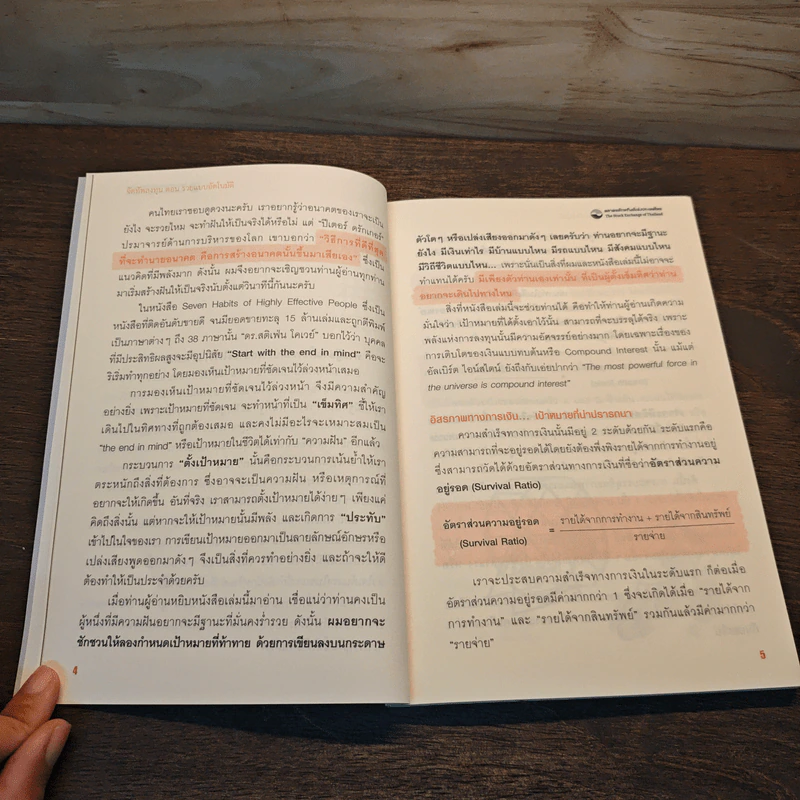 คนไทยเราชอบดูดวงนะครับ เราอยากรู้ว่าอนาคตของเราจะเป็น
ยังไง จะรวยไหม จะทำฝันให้เป็นจริงได้หรือไม่ แต่ "ปีเตอร์ ดรักเกอร์"
ปรมาจารย์ด้านการบริหารของโลก เขาบอกว่า "วิธีการที่ดีที่สุด
ที่จะทำนายอนาคต คือการสร้างอนาคตนั้นขึ้นมาเสียเอง" ซึ่งเป็น
แนวคิดที่มีพลังมาก ดังนั้น ผมจึงอยากจะเชิญชวนท่านผู้อ่านทุกท่าน
มาเริ่มสร้างฝันให้เป็นจริงนับตั้งแต่วินาทีนี้กันนะครับ
ในหนังสือ Seven Habits of Highly Effective People ซึ่งเป็น
หนังสือที่ติดอันดับขายดี จนมียอดขายทะลุ 15 ล้านเล่มและถูกตีพิมพ์
เป็นภาษาต่างๆ ถึง 38 ภาษานั้น "ดร.สตีเฟ่น โคเวย์" บอกไว้ว่า บุคคล
ที่มีประสิทธิผลสูงจะมีอุปนิสัย "Start with the end in mind" คือจะ
ริเริ่มทำทุกอย่าง โดยมองเห็นเป้าหมายที่ชัดเจนไว้ล่วงหน้าเสมอ
การมองเห็นเป้าหมายที่ชัดเจนไว้ล่วงหน้า จึงมีความสำคัญ
อย่างยิ่ง เพราะเป้าหมายที่ชัดเจน จะทำหน้าที่เป็น "เข็มทิศ" ชี้ให้เรา
เดินไปในทิศทางที่ถูกต้องเสมอ และคงไม่มีอะไรจะเหมาะสมเป็น
"the end in mind" หรือเป้าหมายในชีวิตได้เท่ากับ "ความฝัน" อีกแล้ว
กระบวนการ "ตั้งเป้าหมาย" นั้นคือกระบวนการเน้นย้ำให้เรา
ตระหนักถึงสิ่งที่ต้องการ ซึ่งอาจจะเป็นความฝัน หรือเหตุการณ์ที่
อยากจะให้เกิดขึ้น อันที่จริง เราสามารถตั้งเป้าหมายได้ง่ายๆ เพียงแค่
คิดถึงสิ่งนั้น แต่หากจะให้เป้าหมายนั้นมีพลัง และเกิดการ "ประทับ"
เข้าไปในใจของเรา การเขียนเป้าหมายออกมาเป็นลายลักษณ์อักษรหรือ
เปล่งเสียงพูดออกมาดังๆ จึงเป็นสิ่งที่ควรทำอย่างยิ่ง และถ้าจะให้ดี
ต้องทำให้เป็นประจำด้วยครับ
เมื่อท่านผู้อ่านหยิบหนังสือเล่มนี้มาอ่าน เชื่อแน่ว่าท่านคงเป็น
ผู้หนึ่งที่มีความฝันอยากจะมีฐานะที่มั่นคงร่ำรวย ดังนั้น ผมอยากจะ
ชักชวนให้ลองกำหนดเป้าหมายที่ท้าทาย ด้วยการเขียนลงบนกระดาษ
4
ตลาดหลักทรัพย์แห่งประเทศไทย
The Stock Exchange of Thailand
ตัวโตๆ หรือเปล่งเสียงออกมาดังๆ เลยครับว่า ท่านอยากจะมีฐานะ
ยังไง มีเงินเท่าไร มีบ้านแบบไหน มีรถแบบไหน มีสังคมแบบไหน
มีวิถีชีวิตแบบไหน... เพราะนั่นเป็นสิ่งที่ผมและหนังสือเล่มนี้ไม่อาจจะ
ทำแทนได้ครับ มีเพียงตัวท่านเองเท่านั้น ที่เป็นผู้ตั้งเข็มทิศว่าท่าน
อยากจะเดินไปทางไหน
สิ่งที่หนังสือเล่มนี้จะช่วยท่านได้ คือทำให้ท่านผู้อ่านเกิดความ
มั่นใจว่า เป้าหมายที่ได้ตั้งเอาไว้นั้น สามารถที่จะบรรลุได้จริง เพราะ
พลังแห่งการลงทุนนั้นมีความอัศจรรย์อย่างมาก โดยเฉพาะเรื่องของ
การเติบโตของเงินแบบทบต้นหรือ Compound Interest นั้น แม้แต่
อัลเบิร์ต ไอน์สไตน์ ยังถึงกับเอ่ยปากว่า "The most powerful force in
the universe is compound interest"
อิสรภาพทางการเงิน... เป้าหมายที่น่าปรารถนา
ความสำเร็จทางการเงินนั้นมีอยู่ 2 ระดับด้วยกัน ระดับแรกคือ
ความสามารถที่จะอยู่รอดได้โดยยังต้องพึ่งพิงรายได้จากการทำงานอยู่
ซึ่งสามารถวัดได้ด้วยอัตราส่วนทางการเงินที่ชื่อว่าอัตราส่วนความ
อยู่รอด (Survival Ratio)
อัตราส่วนความอยู่รอด (Survival Ratio) = รายได้จากการทำงาน + รายได้จากสินทรัพย์
รายจ่าย
เราจะประสบความสำเร็จทางการเงินในระดับแรก ก็ต่อเมื่อ
อัตราส่วนความอยู่รอดมีค่ามากกว่า 1 ซึ่งจะเกิดได้เมื่อ "รายได้จาก
การทำงาน" และ "รายได้จากสินทรัพย์" รวมกันแล้วมีค่ามากกว่า
"รายจ่าย"
5